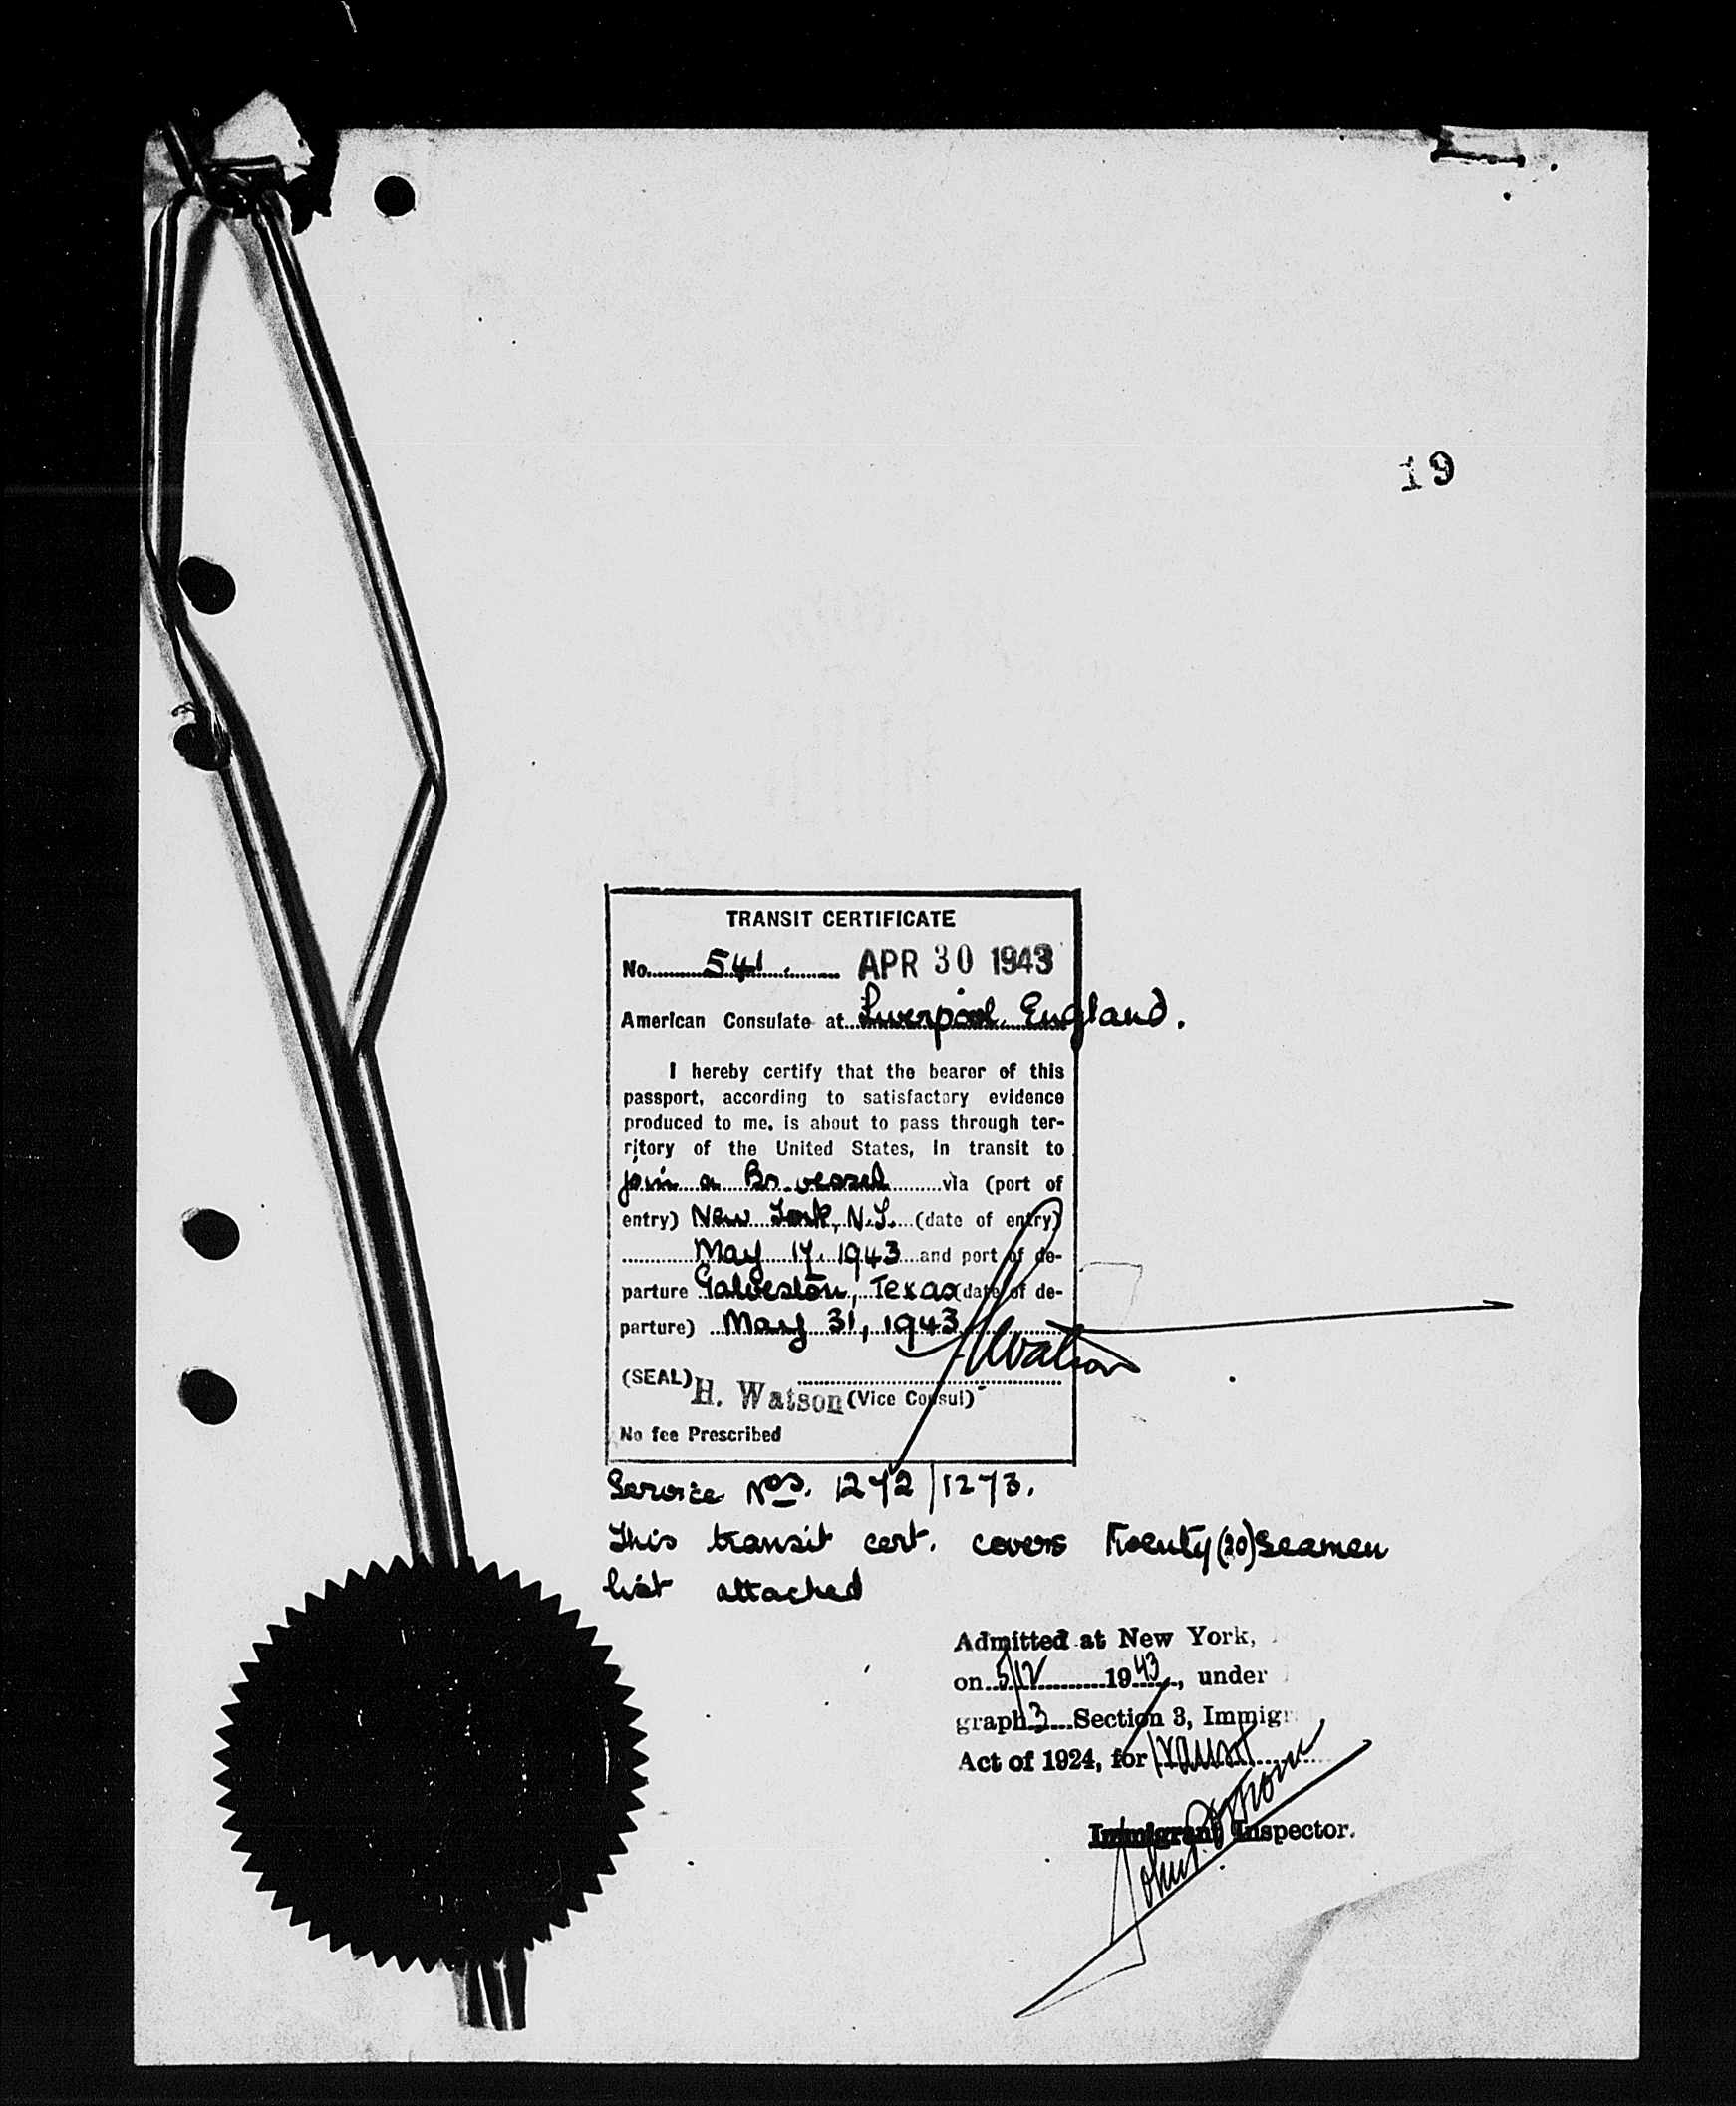 19
TRANSIT CERTIFICATE
No. 541. APR 30 1943
American Consulate at Liverpool England.
I hereby certify that the bearer of this
passport, according to satisfactory evidence
produced to me, is about to pass through ter-
ritory of the United States, in transit to
join a Br. vessel via (port of
entry) New York, N.Y. (date of entry)
May 17, 1943 and port of de-
parture Galveston, Texas (date of de-
parture) May 31, 1943
HWatson
(SEAL)
H. Watson (Vice Consul)
No fee Prescribed
Service Nos. 1272/1273.
This transit cert. covers Twenty (20) Seamen
list attached
Admitted at New York,
on 5/12 1943, under
graph 3 Section 3, Immigr
Act of 1924, for transit
Immigrant Inspector.
John